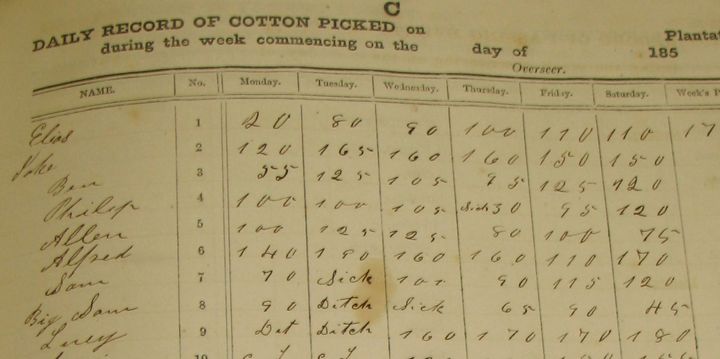 C
DAILY RECORD OF COTTON PICKED on Plantat
during the week commencing on the day of 185
Overseer.
NAME. No. Monday. Tuesday. Wednesday. Thursday. Friday. Saturday. Week's P
Elias 1 20 80 90 100 110 110 17
2 120 165 160 160 150 150
Ben 3 55 125 105 95 125 120
Philip 4 100 100 105 Sick 30 95 120
Allen 5 100 125 125 80 100 75
Alfred 6 140 190 160 160 110 170
Sam 7 70 Sick 90 115 120
Big Sam 8 90 Ditch Sick 65 90 45
Lucy 9 Ditch 160 170 170 180
10